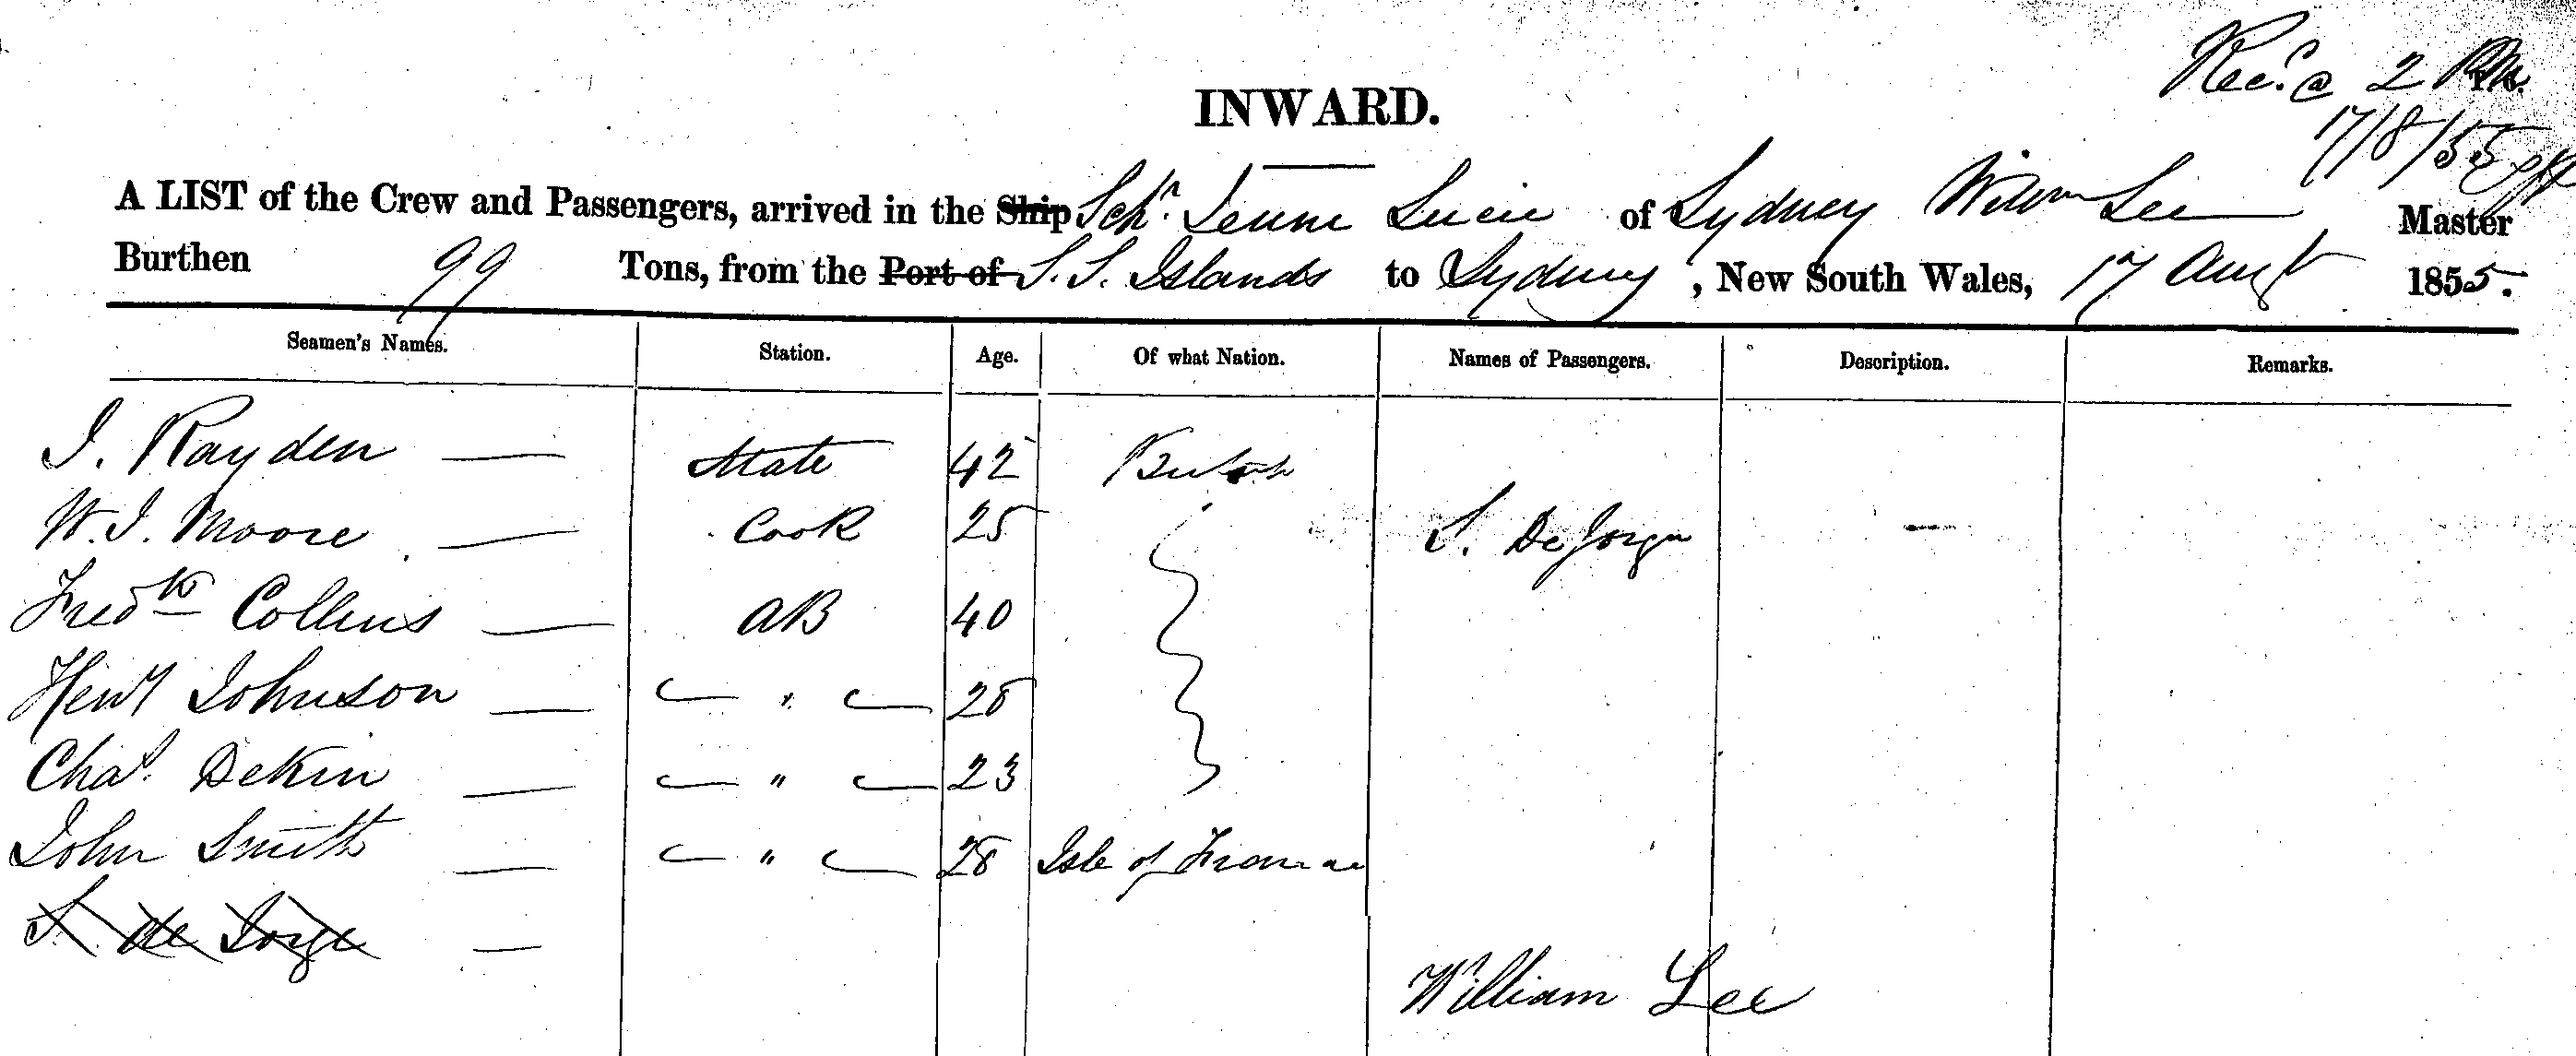 Rec.d @ 2 PM.
17/8/55
INWARD.
A LIST of the Crew and Passengers, arrived in the Ship Schr. Jeune Lucie of Sydney Willm Lee Master
Burthen 99 Tons, from the Port of S. S. Islands to Sydney, New South Wales, 17 Augt 1855.
Seamen's Names. Station. Age. Of what Nation. Names of Passengers. Description. Remarks.
J. Rayden — Mate 42 British
W. J. Moore — Cook 25 S. De Jorge —
Fredk Collins — AB 40
Heny Johnson — — " — 28
Chas. Dekin — — " — 23
John Smith — — " — 28 Isle of France
S. de Jorge —
William Lee